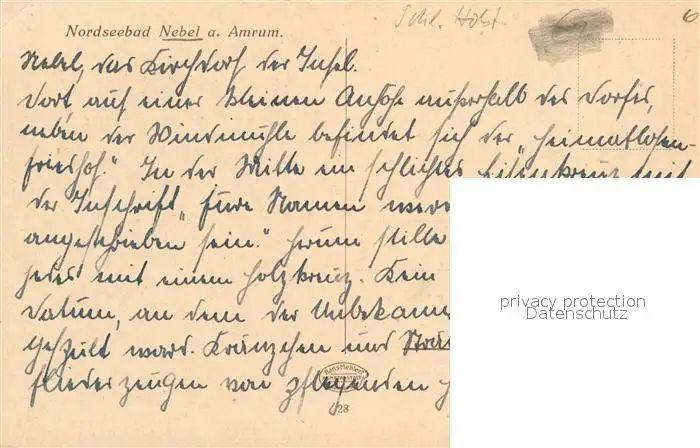 Schl. Holst.
6
Nordseebad Nebel a. Amrum.
Nebel, das Kirchdorf der Insel.
Dort, auf einer kleinen Anhöhe außerhalb des Dorfes,
neben der Windmühle befindet sich der „Heimatlosen-
friedhof.“ In der Mitte ein schlichtes Eisenkreuz mit
der Inschrift „Eure Namen
angeschrieben sein.“ Herum stille
jedes mit einem Holzkreuz. Kein
Datum, an dem der
gespült ward. Kränzchen und
Flieder zeugen von pflegenden
Hans Mehlert
28
privacy protection
Datenschutz